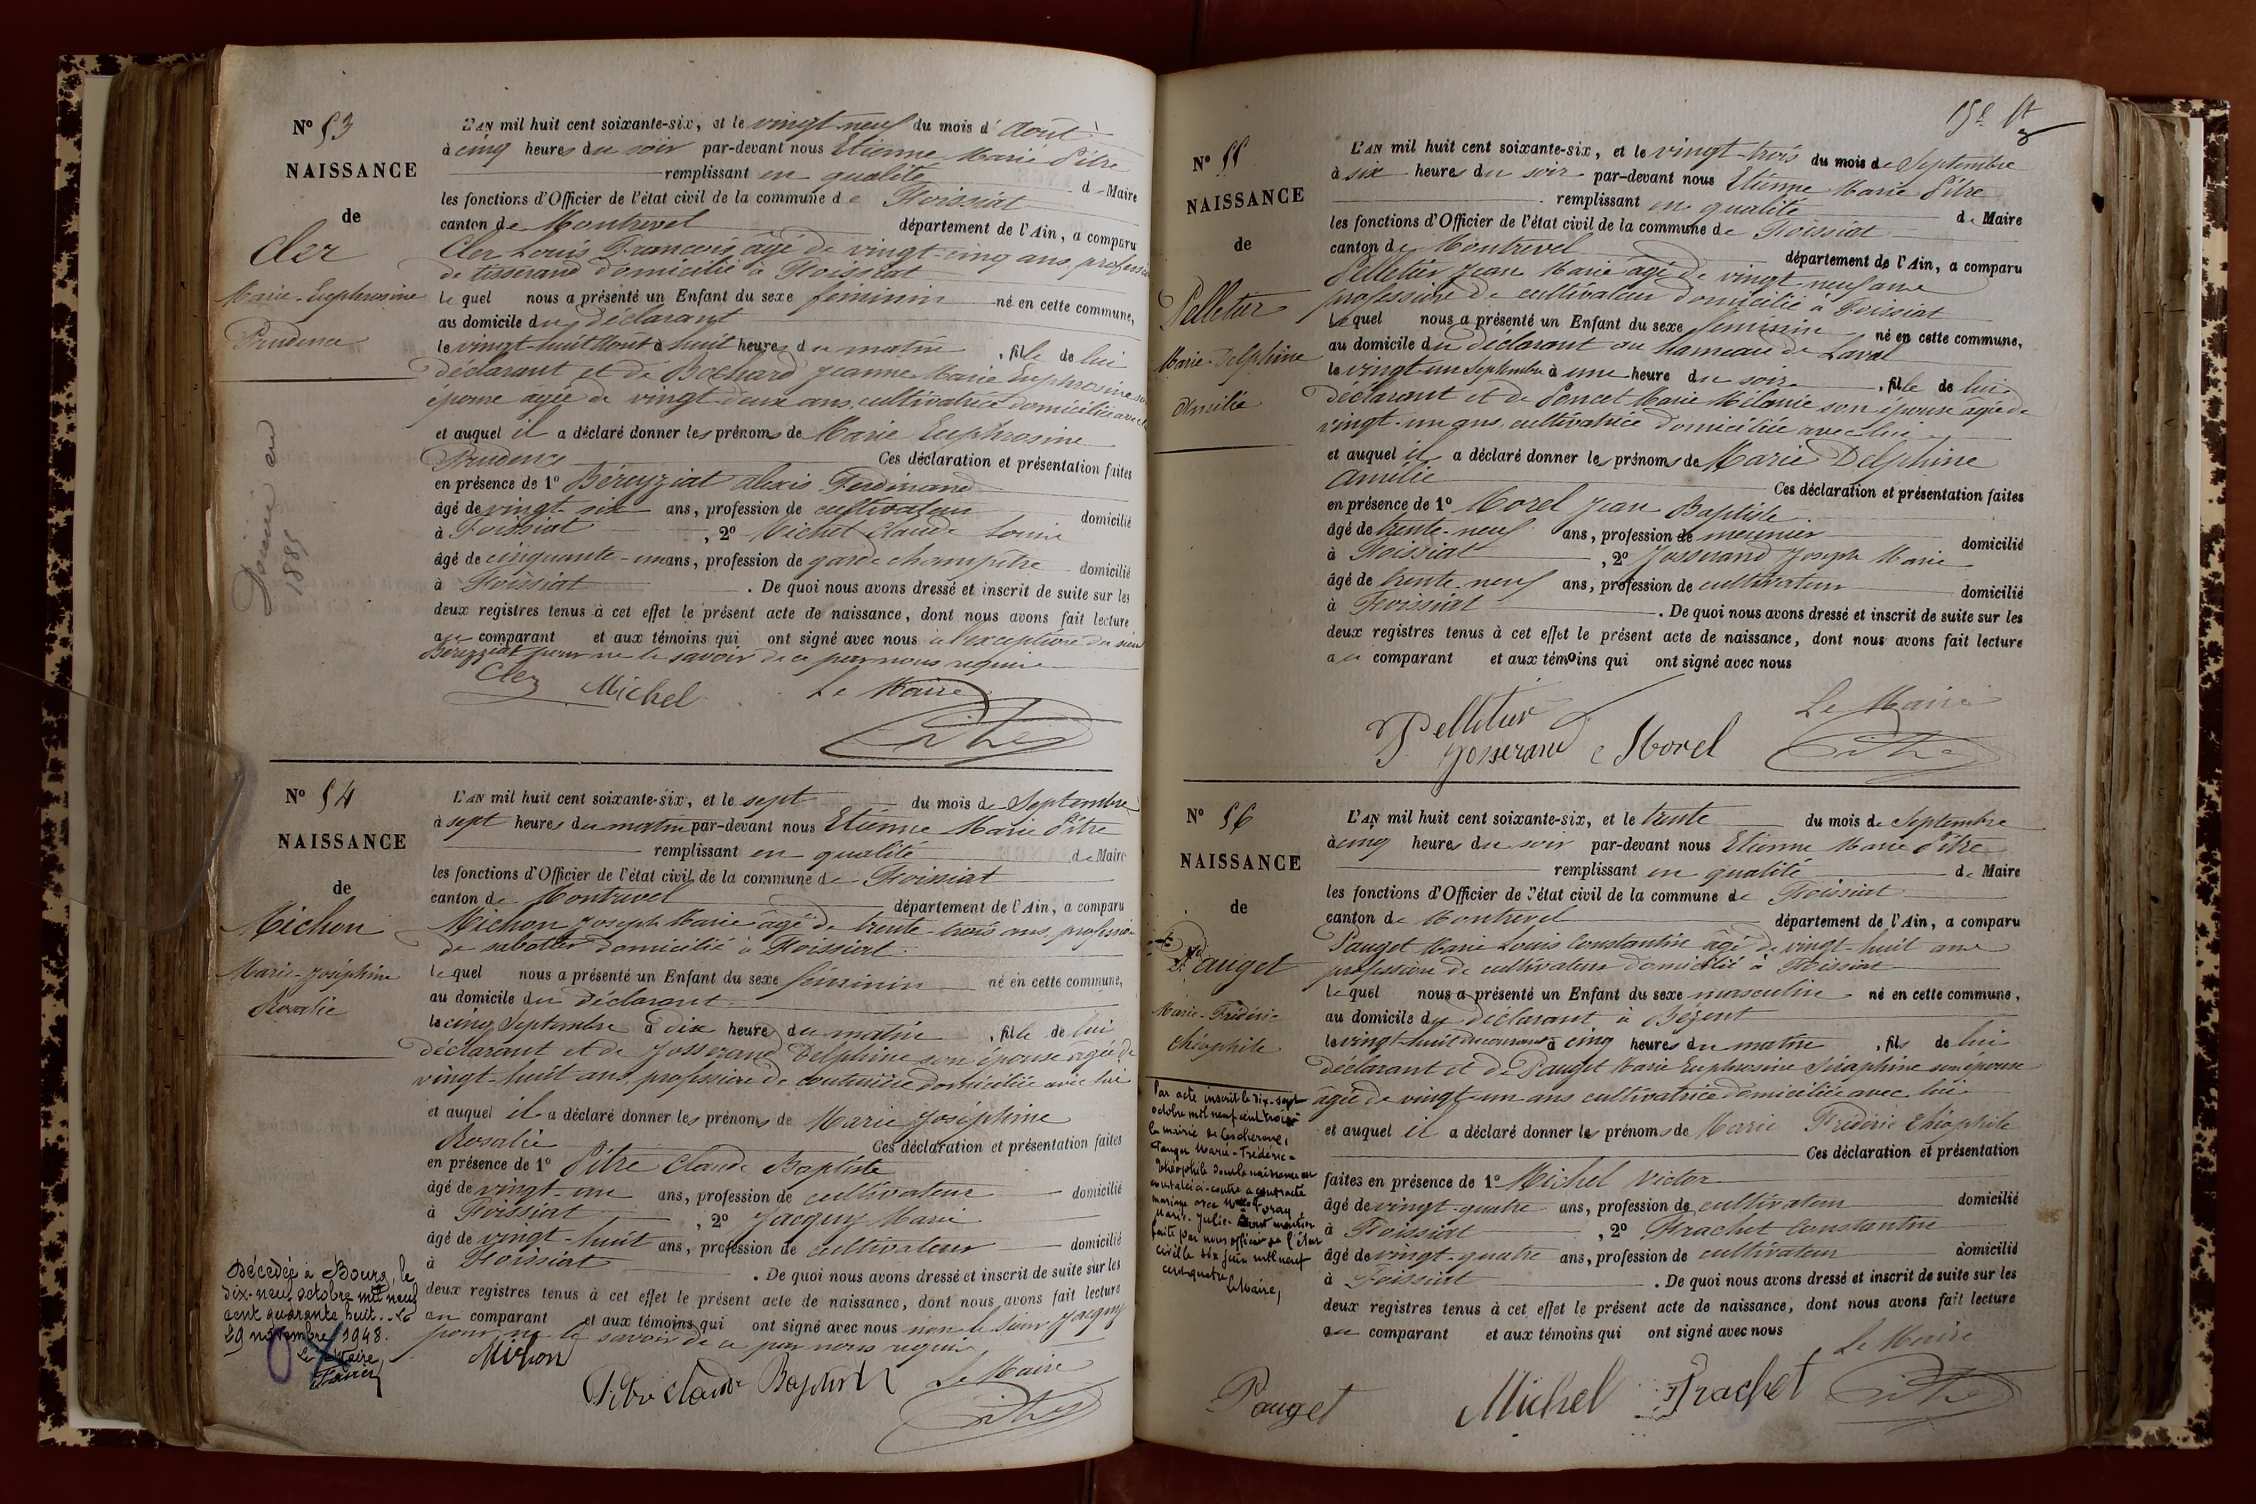 N° 53
NAISSANCE
de
Cler
Marie-Euphrosine
Prudence
L'AN mil huit cent soixante-six, et le vingt-neuf du mois d'Août
à cinq heures du soir par-devant nous Etienne Marie Pitre
remplissant en qualité de Maire
les fonctions d'Officier de l'état civil de la commune de Foissiat
canton de Montrevel département de l'Ain, a comparu
Cler Louis François âgé de vingt-cinq ans, profession
de tisserand domicilié à Foissiat
lequel nous a présenté un Enfant du sexe féminin né en cette commune,
au domicile du déclarant
le vingt-huit Août à huit heures du matin, fille de lui
déclarant et de Bochard Jeanne Marie Euphrosine son
épouse âgée de vingt-deux ans, cultivatrice domiciliée avec lui
et auquel il a déclaré donner les prénoms de Marie Euphrosine
Prudence Ces déclaration et présentation faites
en présence de 1° Béreyziat Alexis Ferdinand
âgé de vingt-six ans, profession de cultivateur domicilié
à Foissiat, 2° Michel Claude Louis
âgé de cinquante-un ans, profession de garde champêtre domicilié
à Foissiat. De quoi nous avons dressé et inscrit de suite sur les
deux registres tenus à cet effet le présent acte de naissance, dont nous avons fait lecture
au comparant et aux témoins qui ont signé avec nous à l'exception du sieur
Béreyziat pour ne le savoir de ce par nous requis
Cler Michel Le Maire
Pitre
N° 54
NAISSANCE
de
Michon
Marie-Joséphine
Rosalie
L'AN mil huit cent soixante-six, et le sept du mois de Septembre
à sept heures du matin par-devant nous Etienne Marie Pitre
remplissant en qualité de Maire
les fonctions d'Officier de l'état civil de la commune de Foissiat
canton de Montrevel département de l'Ain, a comparu
Michon Joseph Marie âgé de trente-trois ans, profession
de sabotier domicilié à Foissiat
lequel nous a présenté un Enfant du sexe féminin né en cette commune,
au domicile du déclarant
le cinq Septembre à dix heures du matin, fille de lui
déclarant et de Josserand Delphine son épouse âgée de
vingt-huit ans, profession de couturière domiciliée avec lui
et auquel il a déclaré donner les prénoms de Marie Joséphine
Rosalie Ces déclaration et présentation faites
en présence de 1° Pitre Claude Baptiste
âgé de vingt-un ans, profession de cultivateur domicilié
à Foissiat, 2° Jacquy Marie
âgé de vingt-huit ans, profession de cultivateur domicilié
à Foissiat. De quoi nous avons dressé et inscrit de suite sur les
deux registres tenus à cet effet le présent acte de naissance, dont nous avons fait lecture
au comparant et aux témoins qui ont signé avec nous non le sieur Jacquy
pour ne le savoir de ce par nous requis
Michon
Pitre Claude Baptiste Le Maire
Pitre
Décédée à Bourg, le
dix-neuf octobre mil neuf
cent quarante huit. Le
29 novembre 1948.
Le Maire,
N° 55
NAISSANCE
de
Pelletier
Marie-Delphine
Amélie
L'AN mil huit cent soixante-six, et le vingt-trois du mois de Septembre
à six heures du soir par-devant nous Etienne Marie Pitre
remplissant en qualité de Maire
les fonctions d'Officier de l'état civil de la commune de Foissiat
canton de Montrevel département de l'Ain, a comparu
Pelletier Jean Marie âgé de vingt neuf ans
profession de cultivateur domicilié à Foissiat
lequel nous a présenté un Enfant du sexe féminin né en cette commune,
au domicile du déclarant au hameau de Laval
le vingt-un Septembre à une heure du soir, fille de lui
déclarant et de Poncet Marie Mélanie son épouse âgée de
vingt-un ans, cultivatrice domiciliée avec lui
et auquel il a déclaré donner les prénoms de Marie Delphine
Amélie Ces déclaration et présentation faites
en présence de 1° Morel Jean Baptiste
âgé de trente-neuf ans, profession de meunier domicilié
à Foissiat, 2° Josserand Joseph Marie
âgé de trente-neuf ans, profession de cultivateur domicilié
à Foissiat. De quoi nous avons dressé et inscrit de suite sur les
deux registres tenus à cet effet le présent acte de naissance, dont nous avons fait lecture
au comparant et aux témoins qui ont signé avec nous
Le Maire
Pelletier
Josserand Morel Pitre
N° 56
NAISSANCE
de
Pauget
Marie-Frédéric
Théophile
L'AN mil huit cent soixante-six, et le trente du mois de Septembre
à cinq heures du soir par-devant nous Etienne Marie Pitre
remplissant en qualité de Maire
les fonctions d'Officier de l'état civil de la commune de Foissiat
canton de Montrevel département de l'Ain, a comparu
Pauget Marie Louis Constantin âgé de vingt-huit ans
profession de cultivateur domicilié à Foissiat
lequel nous a présenté un Enfant du sexe masculin né en cette commune,
au domicile du déclarant à Bézent
le vingt-huit du courant à cinq heures du matin, fils de lui
déclarant et de Pauget Marie Euphrosine Séraphine son épouse
âgée de vingt-un ans cultivatrice domiciliée avec lui
et auquel il a déclaré donner les prénoms de Marie Frédéric Théophile
Ces déclaration et présentation
faites en présence de 1° Michel Victor
âgé de vingt-quatre ans, profession de cultivateur domicilié
à Foissiat, 2° Frachet Constantin
âgé de vingt-quatre ans, profession de cultivateur domicilié
à Foissiat. De quoi nous avons dressé et inscrit de suite sur les
deux registres tenus à cet effet le présent acte de naissance, dont nous avons fait lecture
au comparant et aux témoins qui ont signé avec nous
Le Maire
Pauget Michel Frachet Pitre
Par acte inscrit le dix-sept
octobre mil neuf cent trois à
la mairie de Lescheroux,
Pauget Marie-Frédéric-
Théophile dont la naissance est
constatée ci-contre a contracté
mariage avec
Marie-Julie. Dont mention
faite par nous officier de l'état
civil le dix juin mil neuf
cent quatre,
Le Maire,